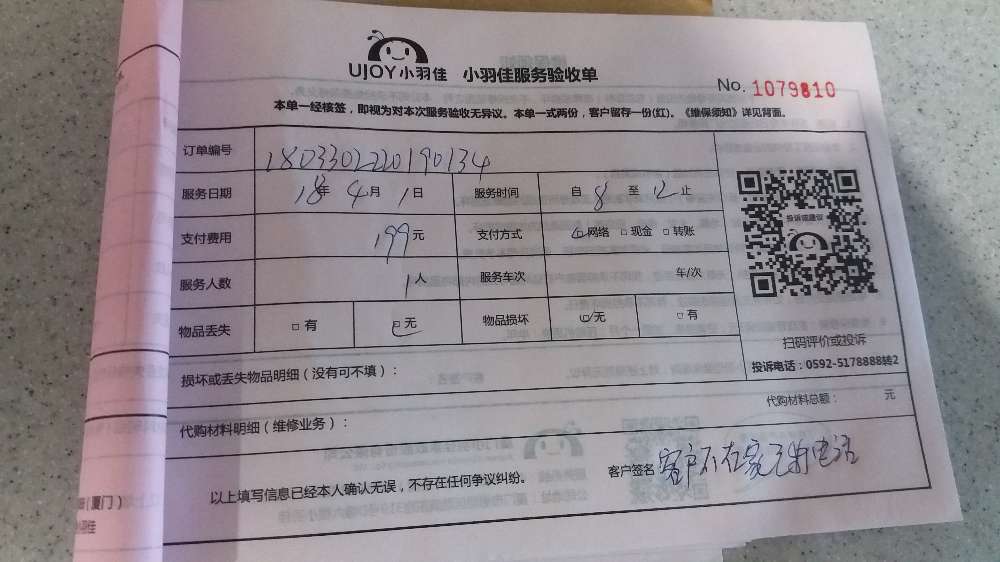 UJOY小羽佳 小羽佳服务验收单
No. 1079810
本单一经核签，即视为对本次服务验收无异议。本单一式两份，客户留存一份(红)。《维保须知》详见背面。
订单编号 180330220190134
服务日期 18年 4月 1日 服务时间 自 8 至 12 止
支付费用 199元 支付方式 ☑网络 □现金 □转账
服务人数 1人 服务车次 车/次
物品丢失 □有 ☑无 物品损坏 ☑无 □有
投诉或建议
扫码评价或投诉
投诉电话：0592-5178888转2
损坏或丢失物品明细（没有可不填）：
代购材料明细（维修业务）： 代购材料总额： 元
以上填写信息已经本人确认无误，不存在任何争议纠纷。 客户签名 客户不在家无电话
（厦门）
小羽佳